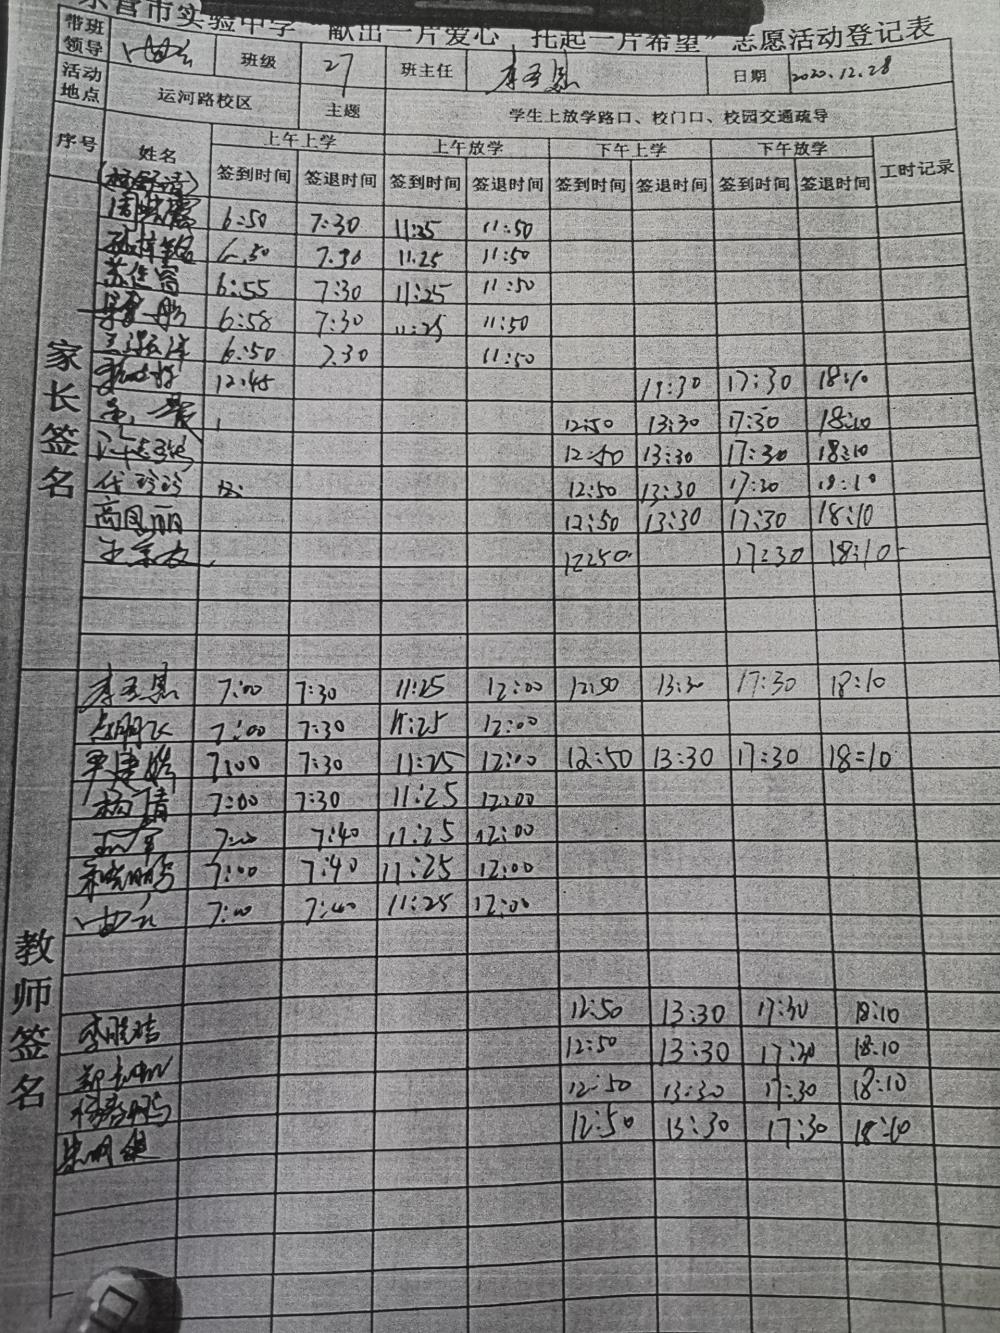 东营市实验中学“献出一片爱心 托起一片希望”志愿活动登记表
带班领导 班级 27 班主任 李子恩 日期 2020.12.28
活动地点 运河路校区 主题 学生上放学路口、校门口、校园交通疏导
序号 姓名 上午上学 上午放学 下午上学 下午放学 工时记录
签到时间 签退时间 签到时间 签退时间 签到时间 签退时间 签到时间 签退时间
家长签名
6:50 7:30 11:25 11:50
6:50 7:30 11:25 11:50
苏佳富 6:55 7:30 11:25 11:50
6:58 7:30 11:25 11:50
6:50 7:30 11:50
12:45 13:30 17:30 18:10
12:50 13:30 17:30 18:10
12:50 13:30 17:30 18:10
代玲玲 12:50 13:30 17:30 18:10
高凤丽 12:50 13:30 17:30 18:10
12:50 17:30 18:10
教师签名
7:00 7:30 11:25 12:00 12:50 13:30 17:30 18:10
7:00 7:30 11:25 12:00
7:00 7:30 11:25 12:00 12:50 13:30 17:30 18:10
杨倩 7:00 7:30 11:25 12:00
7:00 7:40 11:25 12:00
7:00 7:40 11:25 12:00
7:00 7:40 11:25 12:00
李胜洁 12:50 13:30 17:30 18:10
12:50 13:30 17:30 18:10
杨春鹏 12:50 13:30 17:30 18:10
12:50 13:30 17:30 18:10